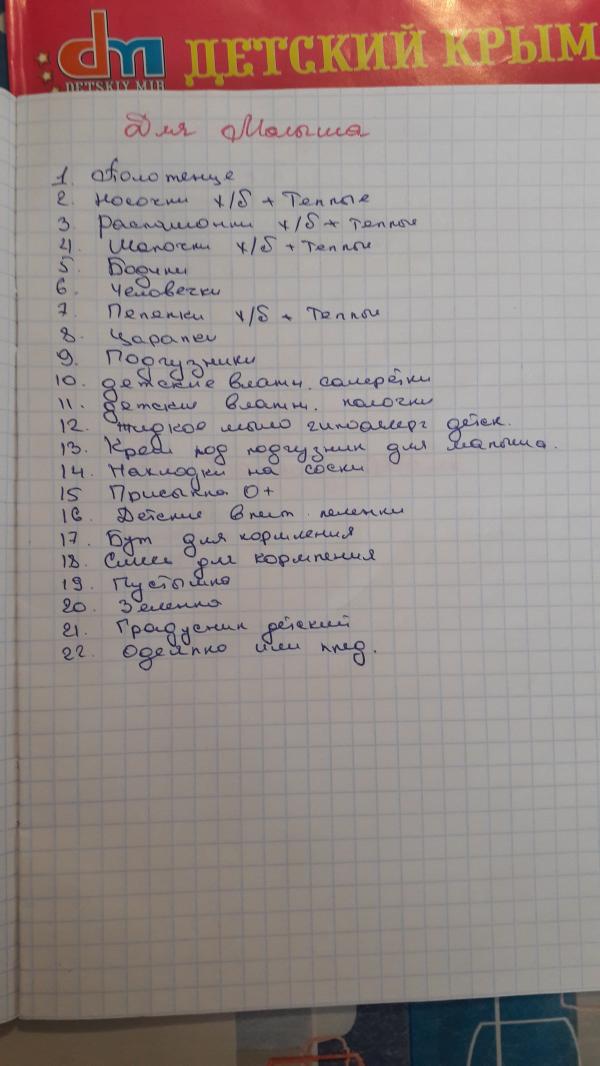 dm
ДЕТСКИЙ КРЫМ
DETSKIY MIR
Для Малыша
1. Полотенце
2. Носочки х/б + Теплые
3. Распашонки х/б + теплые
4. Шапочки х/б + теплы
5. Бодики
6. Человечки
7. Пеленки х/б + Теплы
8. Царапки
9. Подгузники
10. детские влажн. салфетки
11. детские влажн. палочки
12. Жидкое мыло гипоалерг детск.
13. Крем под подгузник для малыша.
14. Накладки на соски
15 Присыпка 0+
16. Детские впит. пеленки
17. Бут для кормления
18. Смесь для кормления
19. Пустышка
20. Зеленка
21. Градусник детский
22. Одеялко или плед.